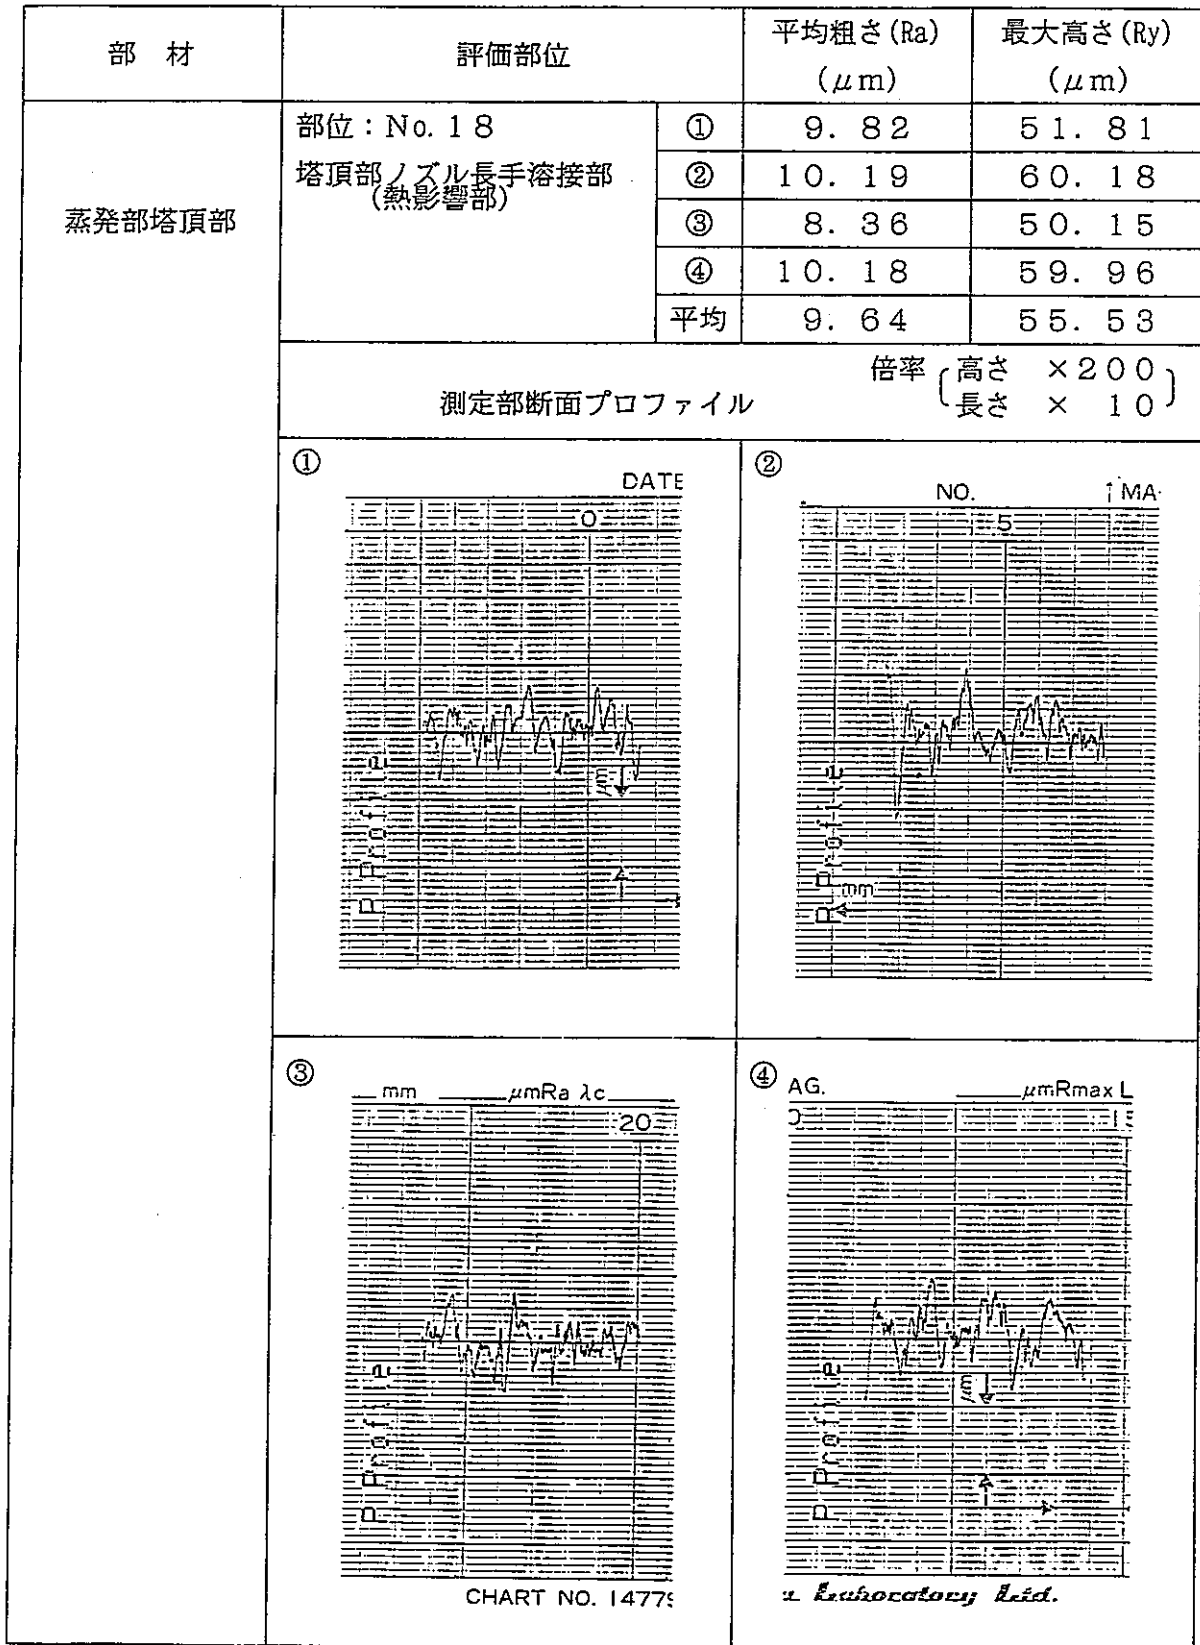 部 材 評価部位 平均粗さ(Ra) (μm) 最大高さ(Ry) (μm)
部位:No.18 ① 9.82 51.81
塔頂部ノズル長手溶接部 ② 10.19 60.18
(熱影響部)
蒸発部塔頂部 ③ 8.36 50.15
④ 10.18 59.96
平均 9.64 55.53
測定部断面プロファイル 倍率 高さ ×200
長さ × 10
①
DATE
0
μm
P Profile
②
NO. ↑MA
5
P Profile
mm
③
mm μmRa λc
20
P Profile
CHART NO. 14779
④
AG. μmRmax L
μm
P Profile
Laboratory Ltd.